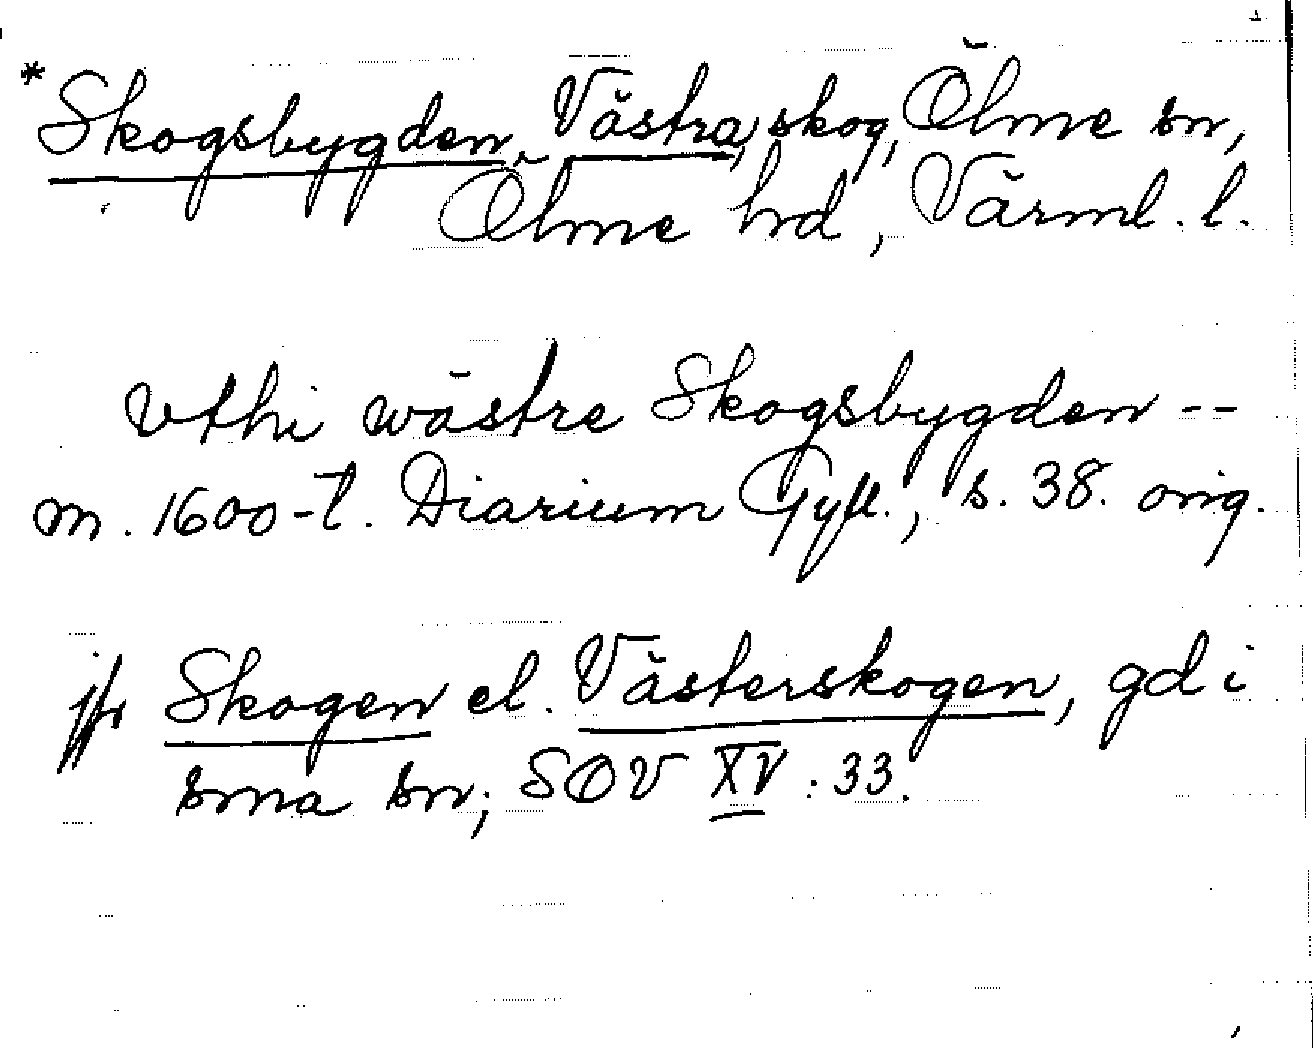 *Skogsbygden, Västra, skog, Ölme sn,
Ölme hd, Värml. l.
Vthi wästre Skogsbygden --
m. 1600-t. Diarium Gyll., s. 38. orig.
jfr Skogen el. Västerskogen, gd i
sma sn; SOV XV : 33.